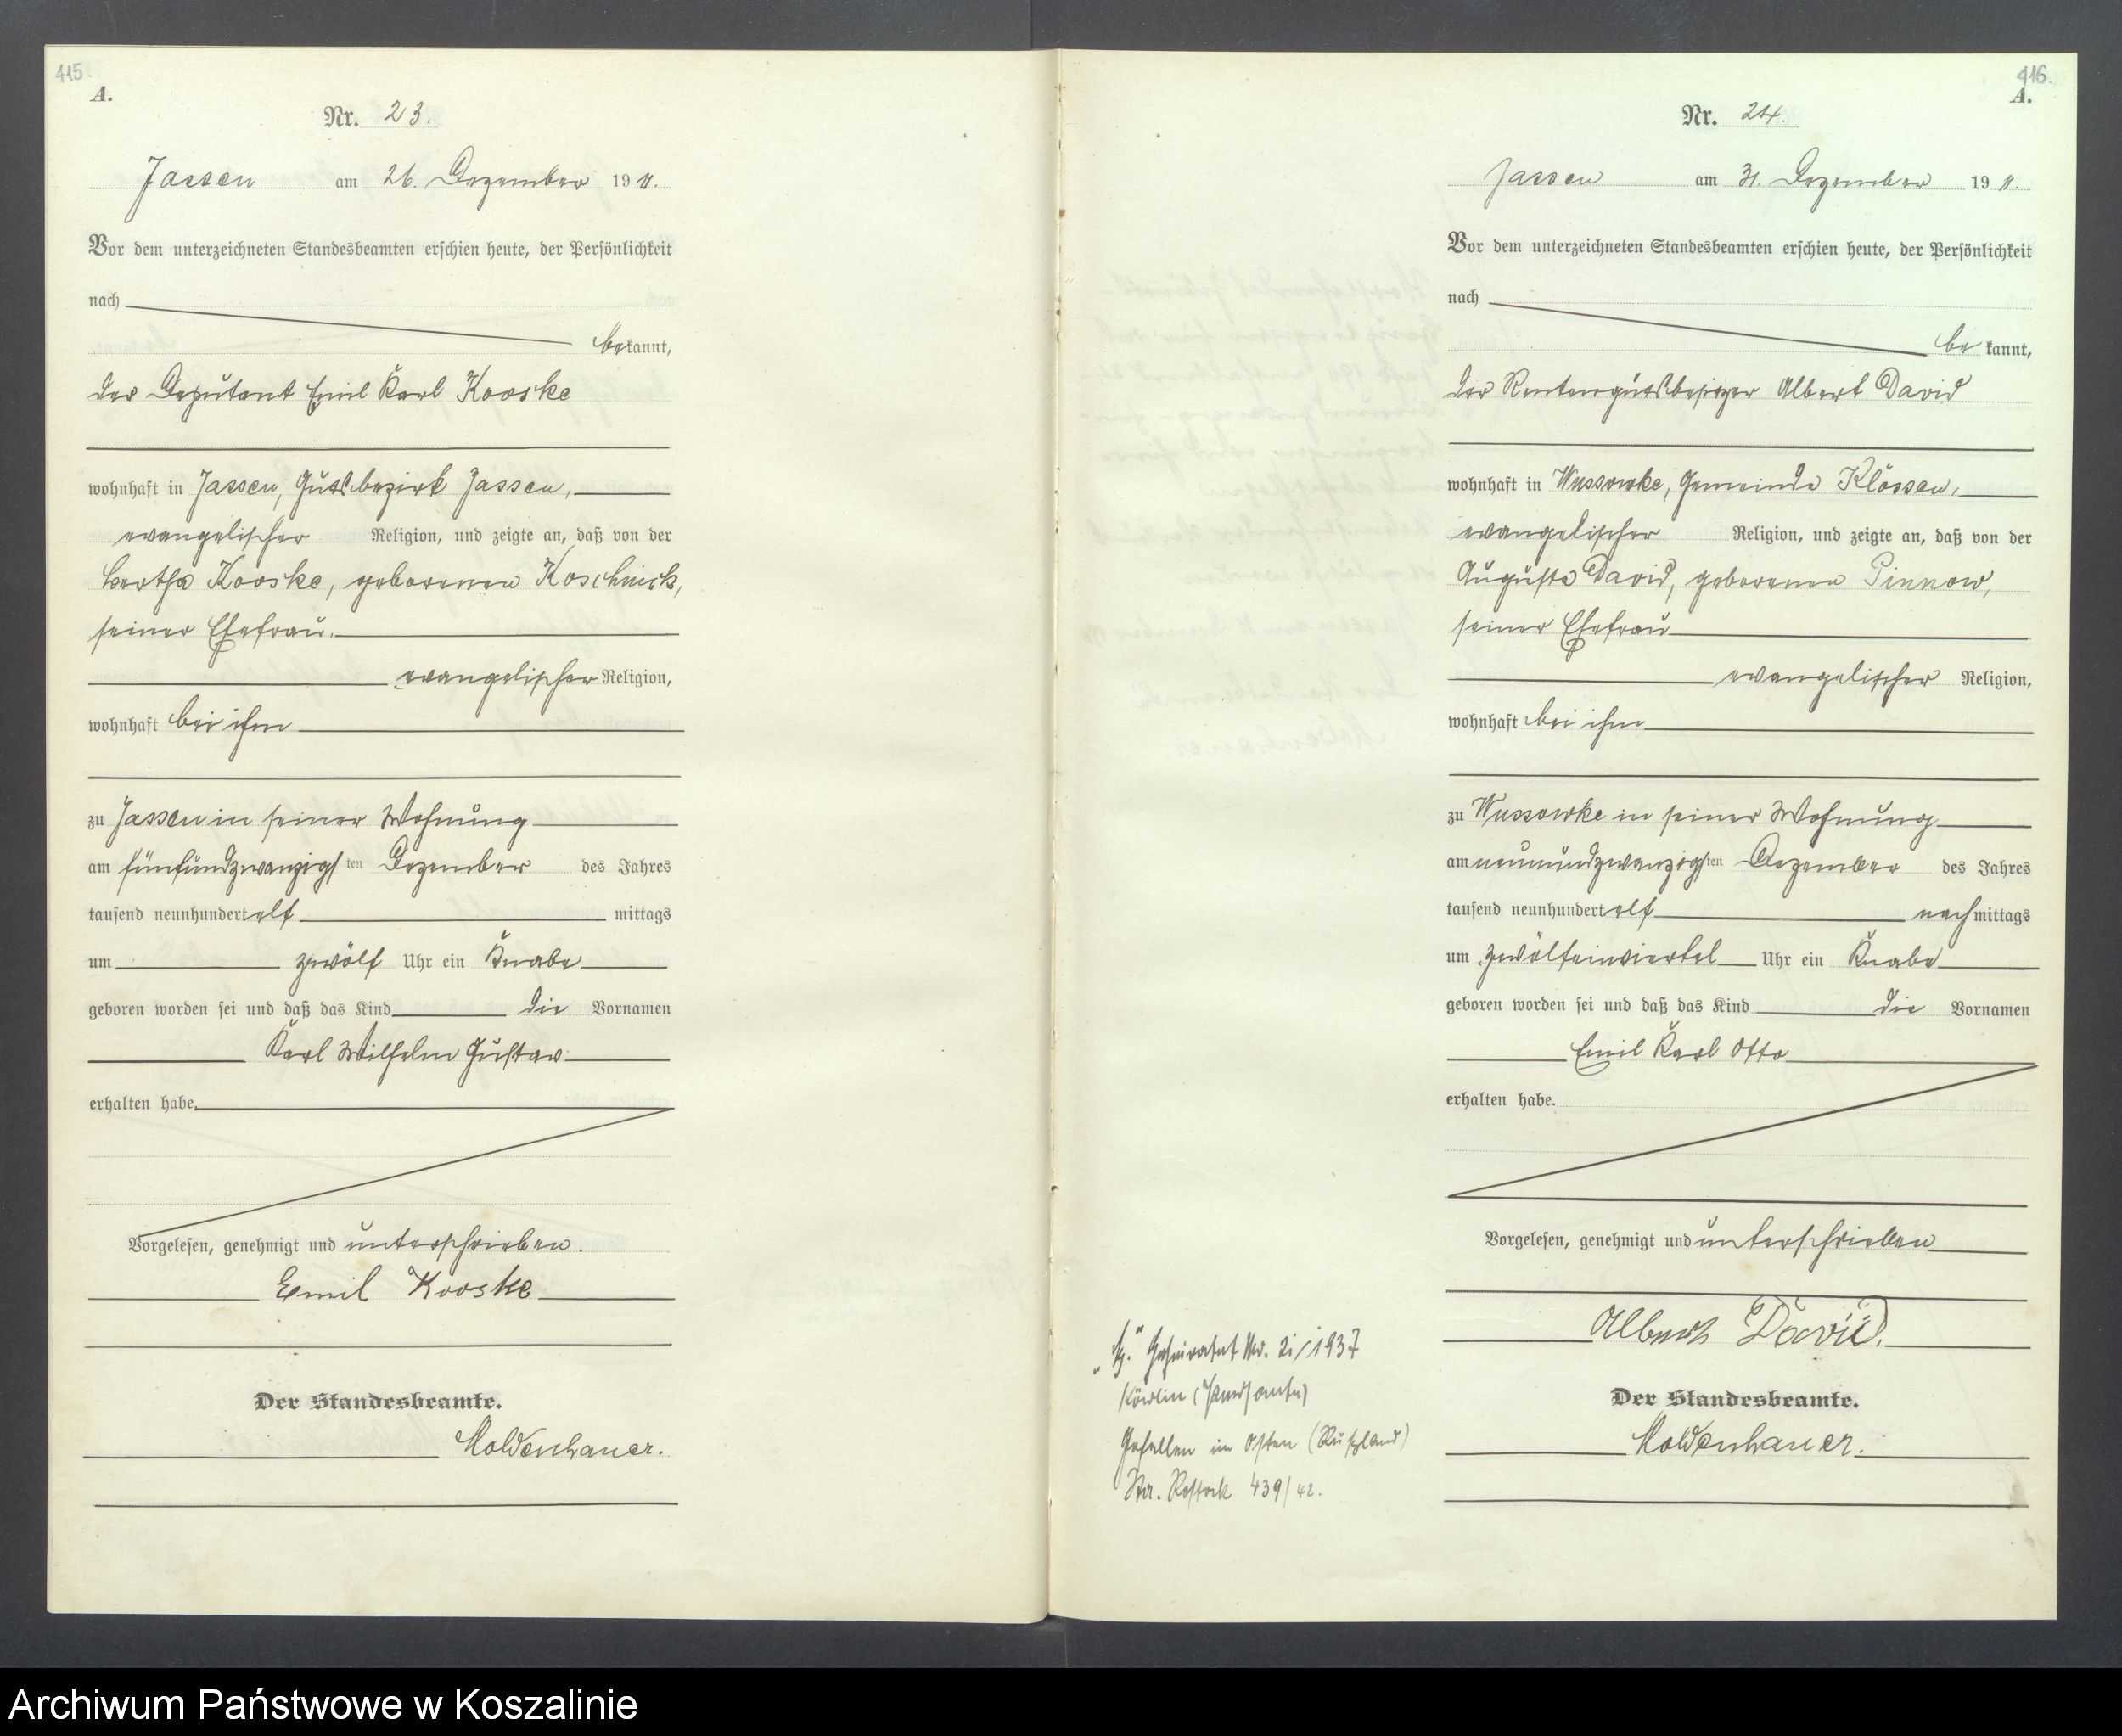 415.
A.
Nr. 23.
Jassen am 26. Dezember 1911.
Vor dem unterzeichneten Standesbeamten erschien heute, der Persönlichkeit
nach
bekannt,
der Deputant Emil Karl Kooske
wohnhaft in Jassen, Gutsbezirk Jassen,
evangelischer Religion, und zeigte an, daß von der
Bertha Kooske, geborenen Koschnick,
seiner Ehefrau.
evangelischer Religion,
wohnhaft bei ihm
zu Jassen in seiner Wohnung
am fünfundzwanzigsten Dezember des Jahres
tausend neunhundert elf mittags
um zwölf Uhr ein Knabe
geboren worden sei und daß das Kind die Vornamen
Karl Wilhelm Gustav
erhalten habe.
Vorgelesen, genehmigt und unterschrieben.
Emil Kooske
Der Standesbeamte.
Moldenhauer.
416.
A.
Nr. 24.
Jassen am 31. Dezember 1911.
Vor dem unterzeichneten Standesbeamten erschien heute, der Persönlichkeit
nach
bekannt,
der Rentengutsbesitzer Albert David
wohnhaft in Wussowke, Gemeinde Klössen,
evangelischer Religion, und zeigte an, daß von der
Auguste David, geborenen Pinnow,
seiner Ehefrau
evangelischer Religion,
wohnhaft bei ihm
zu Wussowke in seiner Wohnung
am neunundzwanzigsten Dezember des Jahres
tausend neunhundert elf nachmittags
um zwölfeinviertel Uhr ein Knabe
geboren worden sei und daß das Kind die Vornamen
Emil Karl Otto
erhalten habe.
Vorgelesen, genehmigt und unterschrieben
Albert David.
Der Standesbeamte.
Moldenhauer.
Geheiratet Nr. 1937
Gefallen im Osten (Rußland)
Rostock 439/42.
Archiwum Państwowe w Koszalinie